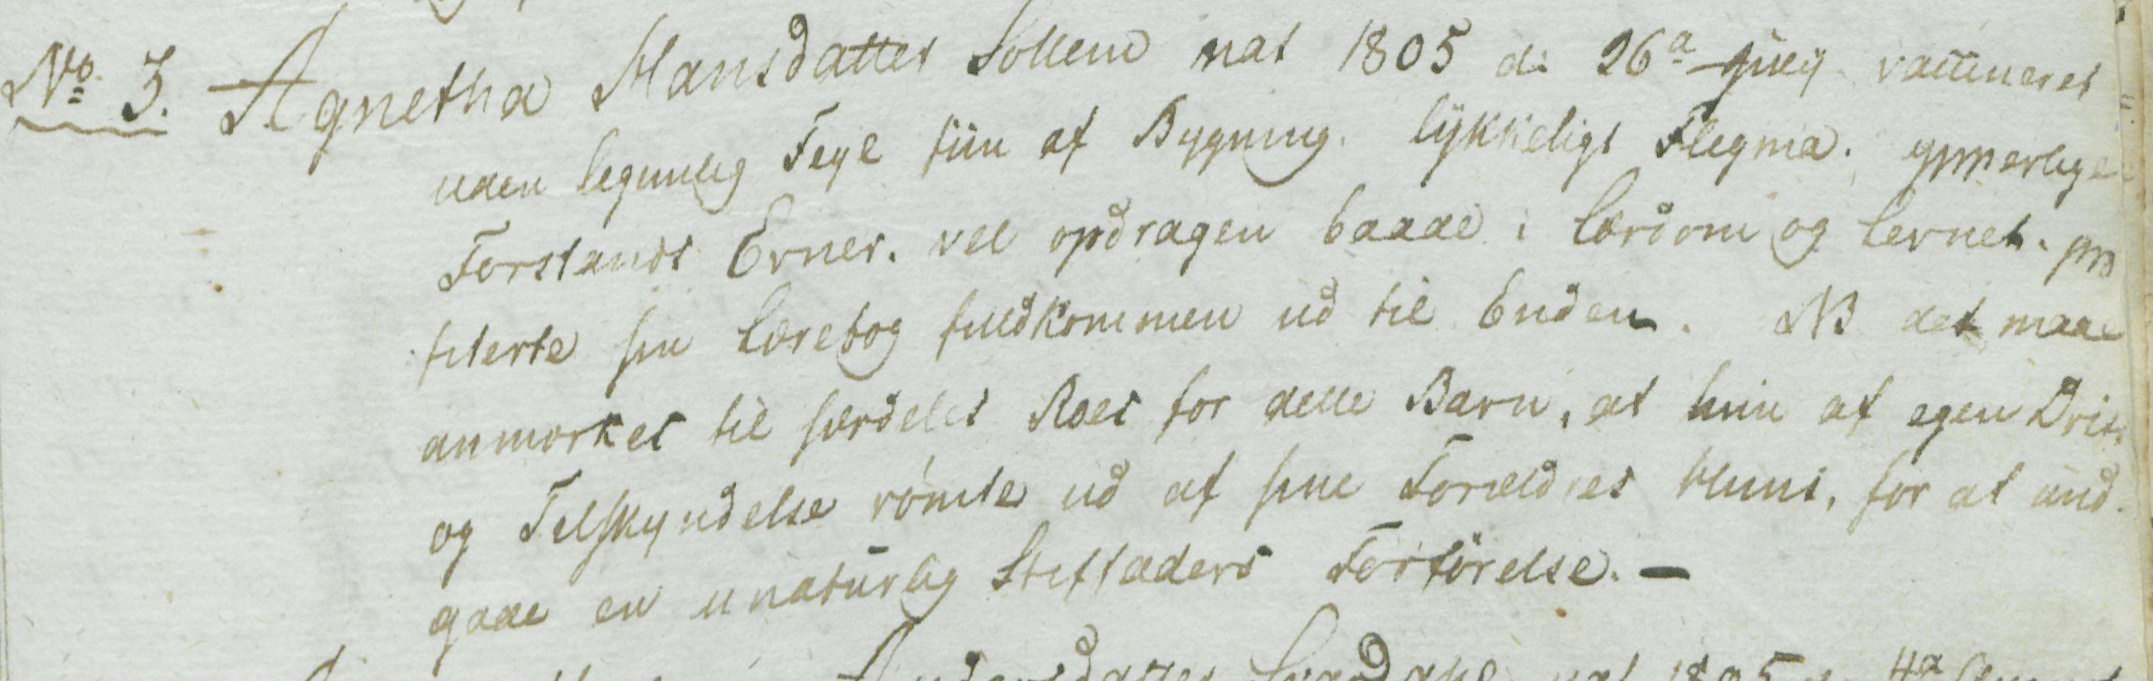 No 3. Agnetha Hansdatter Sollem nat 1805 d: 26a July vaccineret
uden legemlig Feyl fiin af Bygning. lÿkkeligt Flegma. ypperlige
Forstands Evner. vel opdragen baade i Lærdom og Levnet. pro
fiterte sin Lærebog fuldkommen ud til Enden. NB det maae
anmærkes til særdeles Roes for dette Barn, at hun af egen Drift
og Tilskyndelse rømte ud af sine Forældres Huus, for at und.
gaae en unaturlig Stiffaders Forførelse. —
Andersdatter nat 1805 d: 4a